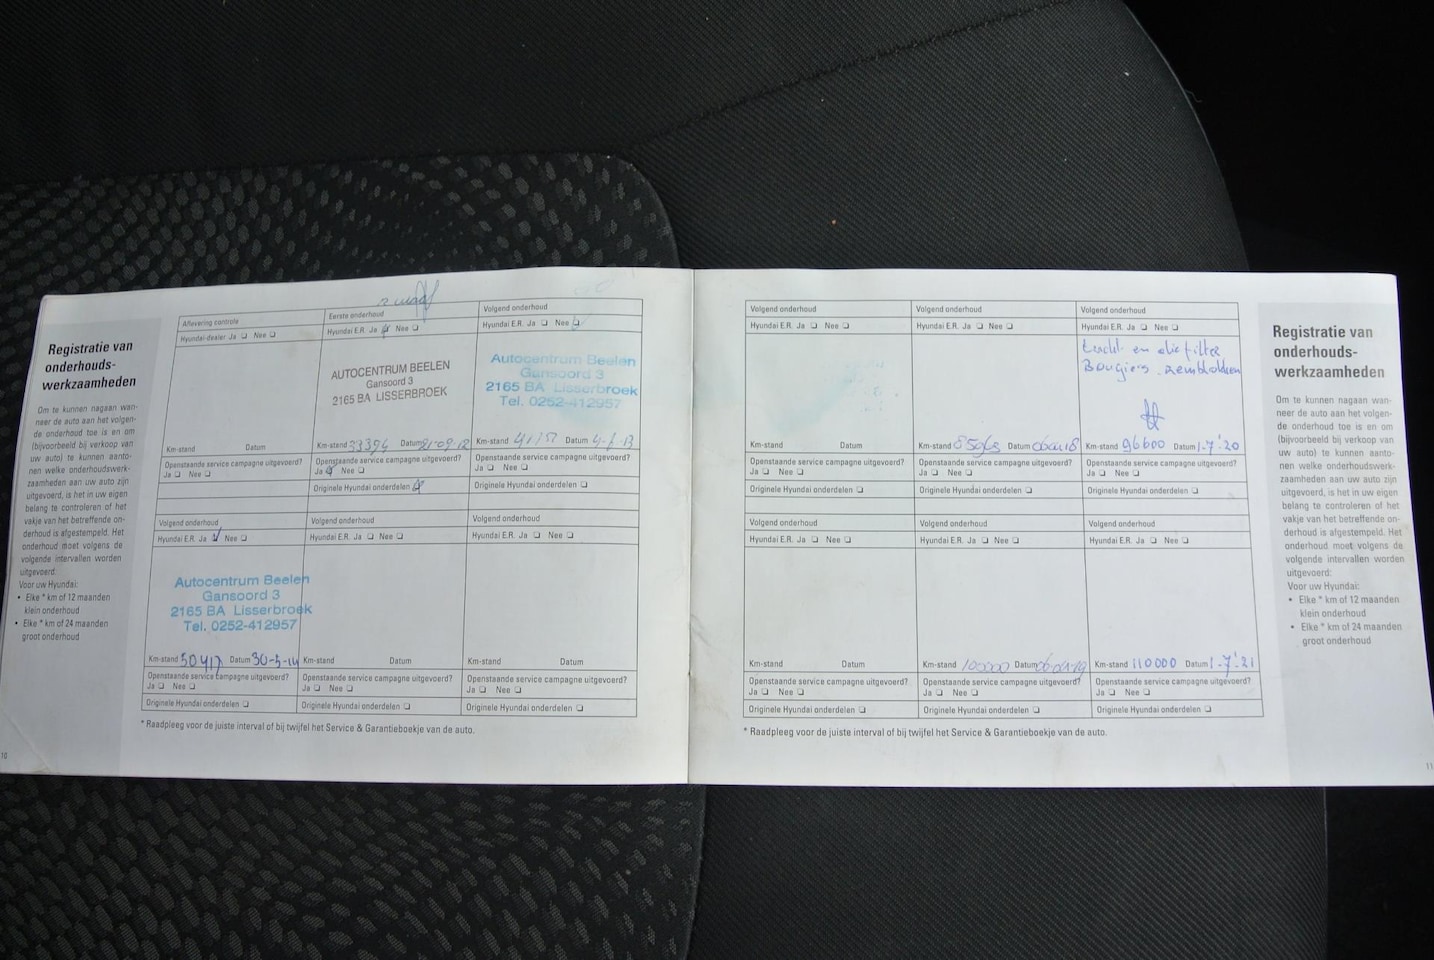 Registratie van
onderhouds-
werkzaamheden
Om te kunnen nagaan wan-
neer de auto aan het volgen-
de onderhoud toe is en om
(bijvoorbeeld bij verkoop van
uw auto) te kunnen aanto-
nen welke onderhoudswerk-
zaamheden aan uw auto zijn
uitgevoerd, is het in uw eigen
belang te controleren of het
vakje van het betreffende on-
derhoud is afgestempeld. Het
onderhoud moet volgens de
volgende intervallen worden
uitgevoerd:
Voor uw Hyundai:
• Elke * km of 12 maanden
klein onderhoud
• Elke * km of 24 maanden
groot onderhoud
10
Aflevering controle
Hyundai-dealer Ja ❏ Nee ❏
Km-stand Datum
Openstaande service campagne uitgevoerd?
Ja ❏ Nee ❏
Eerste onderhoud
Hyundai E.R. Ja ❏ Nee ❏
AUTOCENTRUM BEELEN
Gansoord 3
2165 BA LISSERBROEK
Km-stand 33394 Datum
Openstaande service campagne uitgevoerd?
Ja ❏ Nee ❏
Originele Hyundai onderdelen ❏
Volgend onderhoud
Hyundai E.R. Ja ❏ Nee ❏
Autocentrum Beelen
Gansoord 3
2165 BA Lisserbroek
Tel. 0252-412957
Km-stand Datum
Openstaande service campagne uitgevoerd?
Ja ❏ Nee ❏
Originele Hyundai onderdelen ❏
Volgend onderhoud
Hyundai E.R. Ja ❏ Nee ❏
Autocentrum Beelen
Gansoord 3
2165 BA Lisserbroek
Tel. 0252-412957
Km-stand 50417 Datum 30-5-14
Openstaande service campagne uitgevoerd?
Ja ❏ Nee ❏
Originele Hyundai onderdelen ❏
Volgend onderhoud
Hyundai E.R. Ja ❏ Nee ❏
Km-stand Datum
Openstaande service campagne uitgevoerd?
Ja ❏ Nee ❏
Originele Hyundai onderdelen ❏
Volgend onderhoud
Hyundai E.R. Ja ❏ Nee ❏
Km-stand Datum
Openstaande service campagne uitgevoerd?
Ja ❏ Nee ❏
Originele Hyundai onderdelen ❏
* Raadpleeg voor de juiste interval of bij twijfel het Service & Garantieboekje van de auto.
Volgend onderhoud
Hyundai E.R. Ja ❏ Nee ❏
Km-stand Datum
Openstaande service campagne uitgevoerd?
Ja ❏ Nee ❏
Originele Hyundai onderdelen ❏
Volgend onderhoud
Hyundai E.R. Ja ❏ Nee ❏
Km-stand Datum
Openstaande service campagne uitgevoerd?
Ja ❏ Nee ❏
Originele Hyundai onderdelen ❏
Volgend onderhoud
Hyundai E.R. Ja ❏ Nee ❏
Lucht- en oliefilter
Bougies remblokken
Km-stand 96600 Datum 1-7-'20
Openstaande service campagne uitgevoerd?
Ja ❏ Nee ❏
Originele Hyundai onderdelen ❏
Volgend onderhoud
Hyundai E.R. Ja ❏ Nee ❏
Km-stand Datum
Openstaande service campagne uitgevoerd?
Ja ❏ Nee ❏
Originele Hyundai onderdelen ❏
Volgend onderhoud
Hyundai E.R. Ja ❏ Nee ❏
Km-stand 100000 Datum
Openstaande service campagne uitgevoerd?
Ja ❏ Nee ❏
Originele Hyundai onderdelen ❏
Volgend onderhoud
Hyundai E.R. Ja ❏ Nee ❏
Km-stand 110000 Datum 1-7-'21
Openstaande service campagne uitgevoerd?
Ja ❏ Nee ❏
Originele Hyundai onderdelen ❏
* Raadpleeg voor de juiste interval of bij twijfel het Service & Garantieboekje van de auto.
Registratie van
onderhouds-
werkzaamheden
Om te kunnen nagaan wan-
neer de auto aan het volgen-
de onderhoud toe is en om
(bijvoorbeeld bij verkoop van
uw auto) te kunnen aanto-
nen welke onderhoudswerk-
zaamheden aan uw auto zijn
uitgevoerd, is het in uw eigen
belang te controleren of het
vakje van het betreffende on-
derhoud is afgestempeld. Het
onderhoud moet volgens de
volgende intervallen worden
uitgevoerd:
Voor uw Hyundai:
• Elke * km of 12 maanden
klein onderhoud
• Elke * km of 24 maanden
groot onderhoud
11